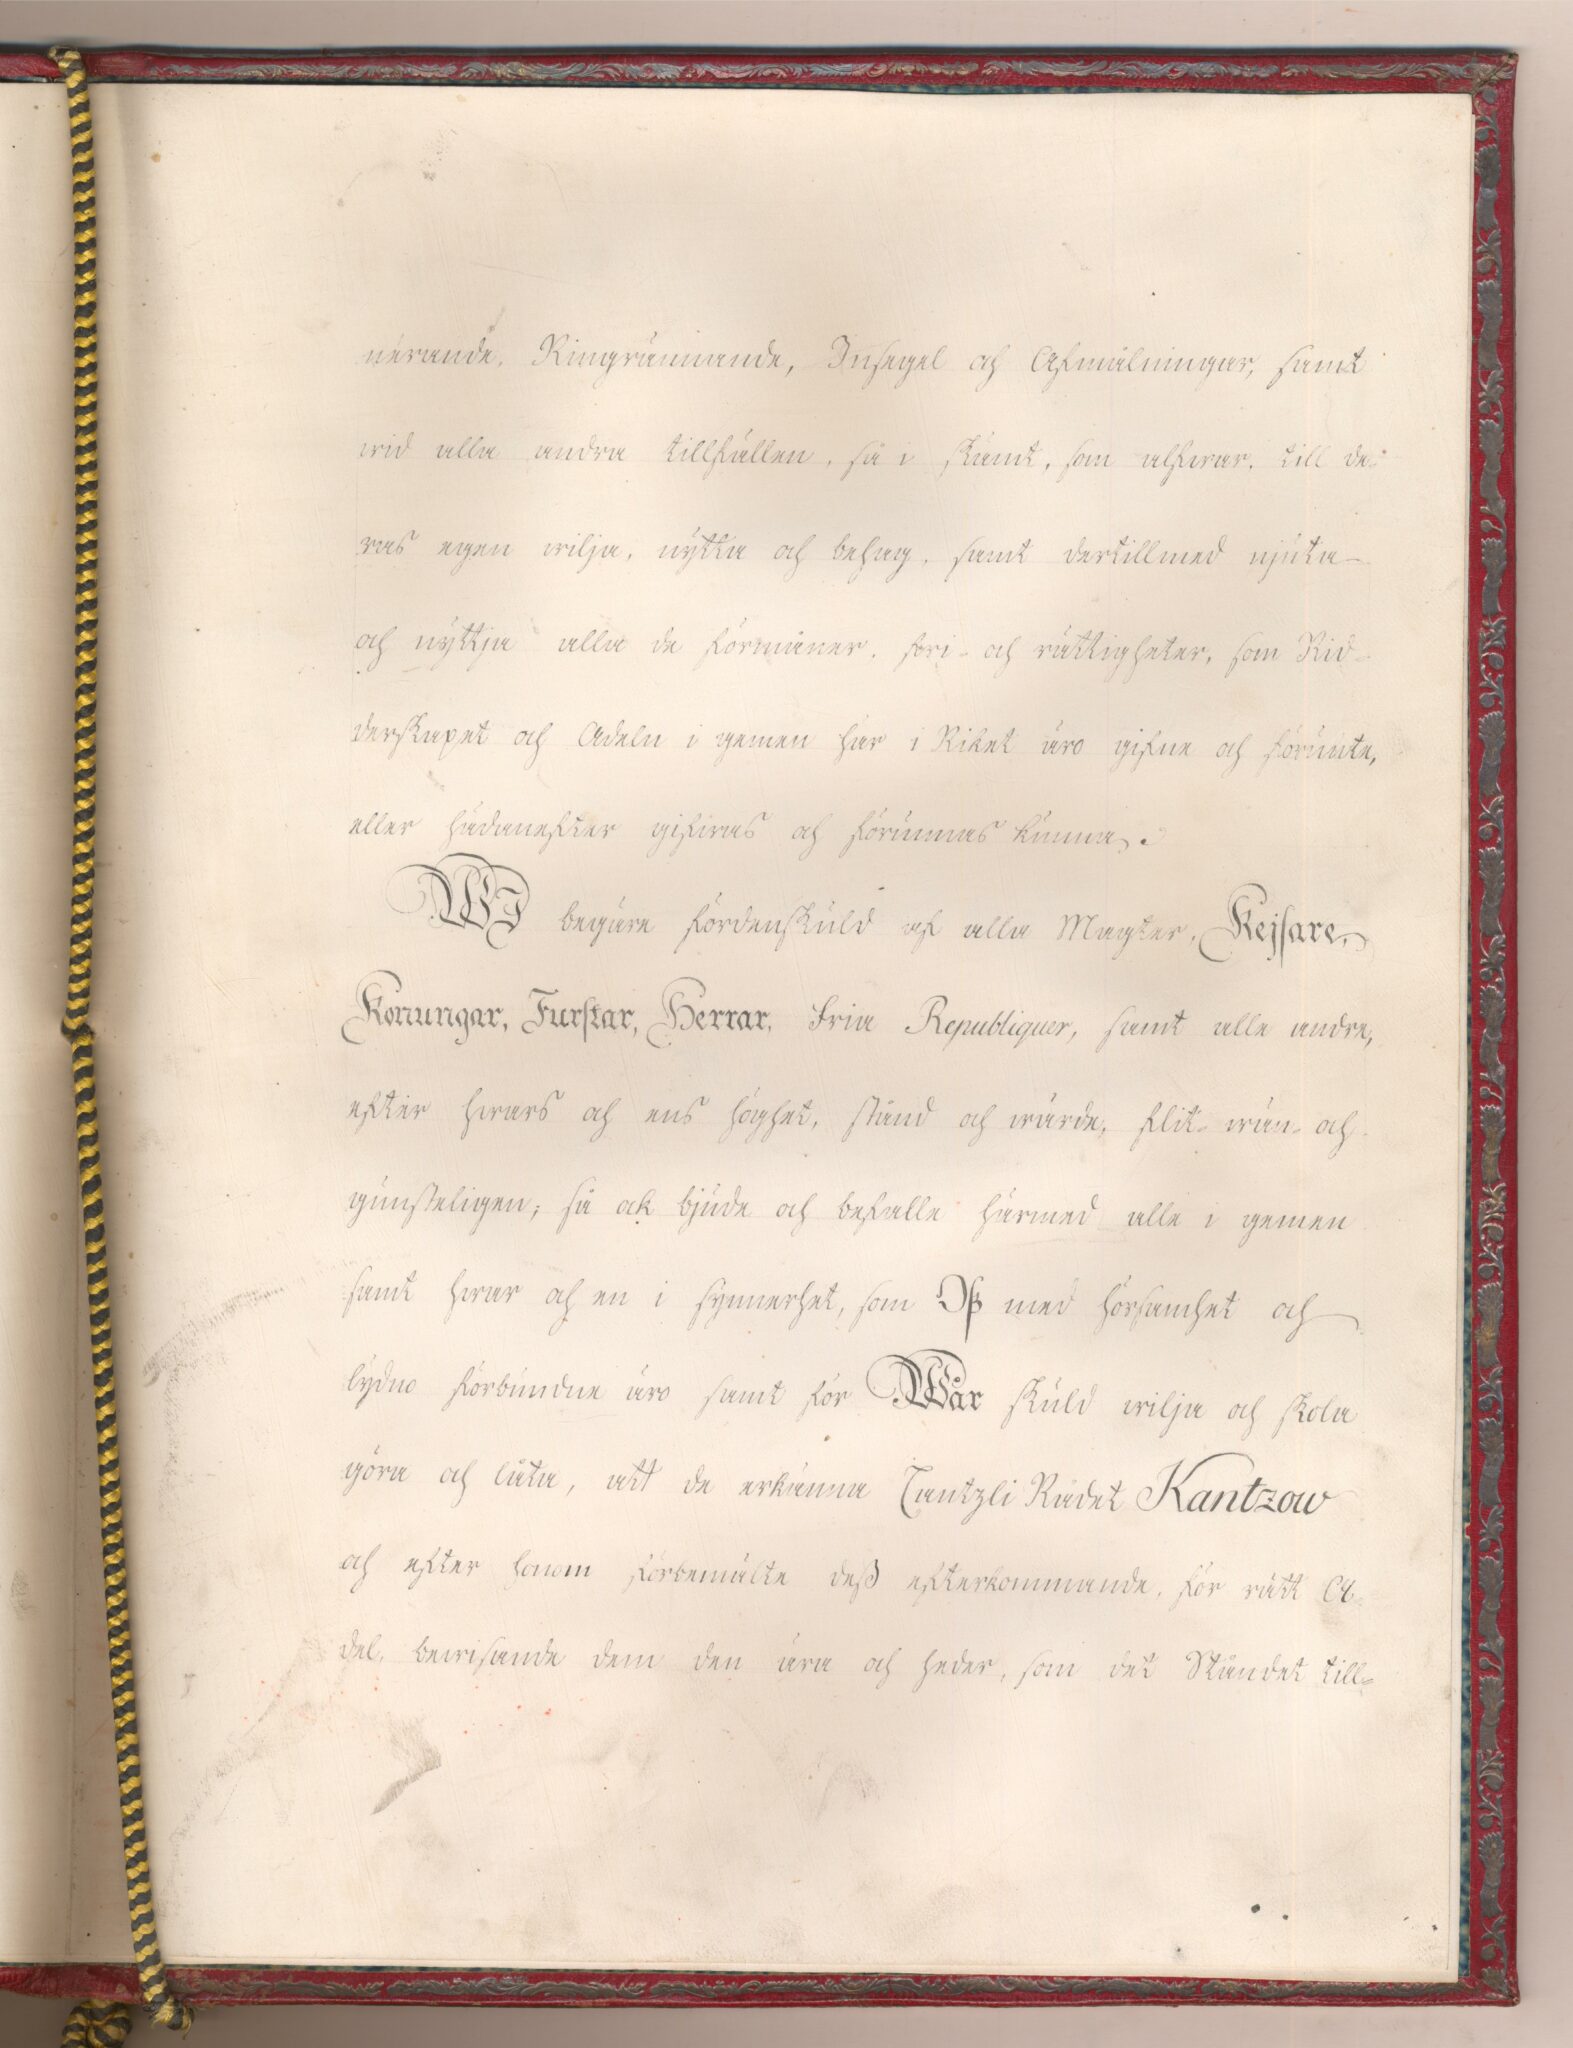 nerande, Ringrännande, Insegel och Afmålningar, samt
wid alla andra tillfällen, så i skämt, som alfwar, till de-
ras egen wilja, nytta och behag, samt dertillmed njuta
och nyttja alla de förmåner, fri- och rättigheter, som Rid-
derskapet och Adeln i gemen här i Riket äro gifne och förunte,
eller hädanefter gifwas och förunnas kunna.
WI begäre fördenskuld af alla Magter, Kejsare,
Konungar, Furstar, Herrar, Fria Republiquer, samt alle andre,
efter hwars och ens höghet, stånd och wärde, flit- wän- och
gunsteligen; så ock bjude och befalle härmed alle i gemen
samt hwar och en i synnerhet, som Oß med hörsamhet och
lydno förbundne äro samt för Wår skuld wilja och skola
göra och låta, att de erkänna Cantzli Rådet Kantzow
och efter honom förbemälte deß efterkommande, för rätt A-
del, bewisande dem den ära och heder, som det Ståndet till-